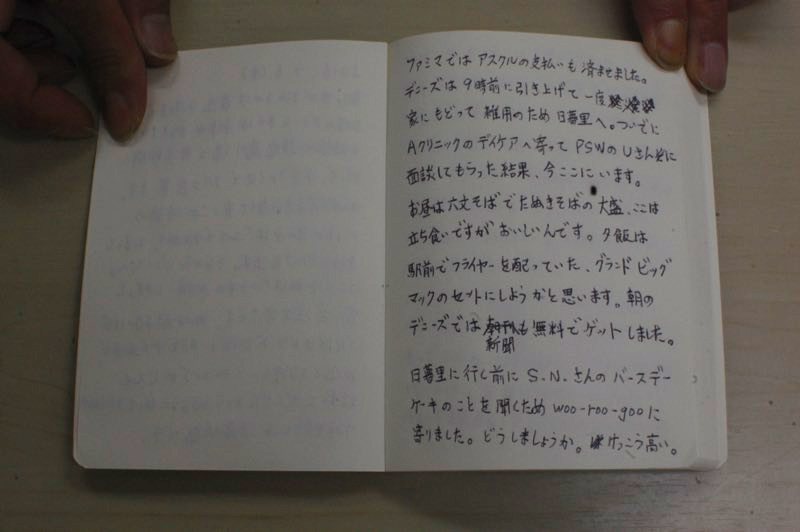 ファミマでは アスクルの支払いも 済ませました。
デニーズは 9時前に引き上げて 一度
家にもどって 雑用のため 日暮里へ。ついでに
Aクリニックのデイケアへ寄って PSWのUさんに
面談してもらった結果、今ここにいます。
お昼は六文そばでたぬきそばの大盛、ここは
立ち食いですがおいしいんです。夕飯は
駅前でフライヤーを配っていた、グランドビッグ
マックのセットにしようかと思います。朝の
デニーズでは 新聞も 無料でゲットしました。
日暮里に行く前に S.N.さんの バースデー
ケーキのことを聞くため woo-roo-gooに
寄りました。どうしましょうか。けっこう高い。